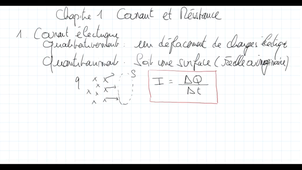 Chapitre 1 Courant et Résistance
1 Courant électrique
Qualitativement : un déplacement de charges électriques
Quantitativement : Soit une surface (réelle ou imaginaire)
q S I = ΔQ / Δt